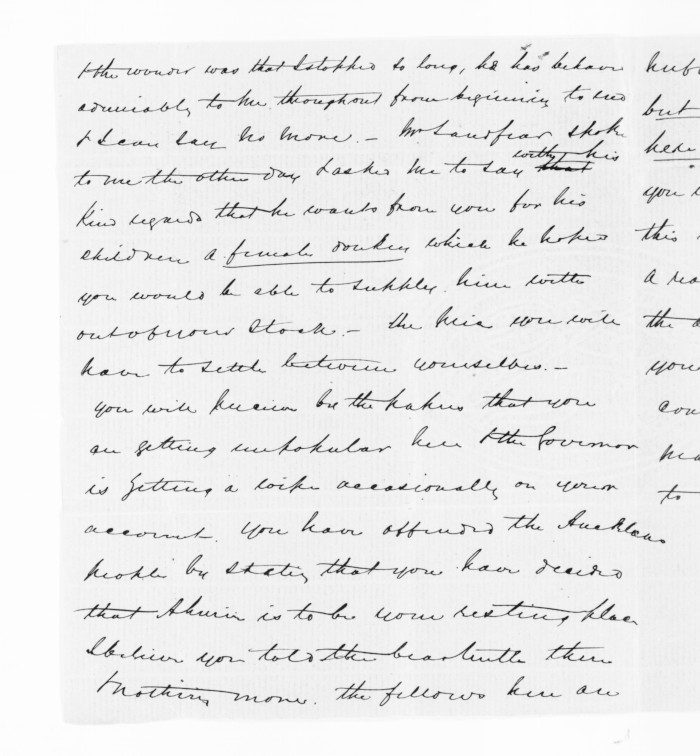 & the wonder was that I stopped so long, he has behave
admirably to me throughout from beginning to end
& I can say no more. — Mr Landfear spoke
to me the other day & asked me to say with his
kind regards that he wants from you for his
children a female donkey which he hopes
you would be able to supply him with
out of your stock. — the price you will
have to settle between yourselves. —
you will perceive by the papers that you
are getting unpopular here & the Governor
is getting a wipe occasionally on your
account. you have offended the Auckland
people by stating that you have decided
that Ahuriri is to be your resting place
I believe you told the beastly there
& nothing more. the fellows here are
hef
but
here
you
this
a rea
the a
your
con
ma
to